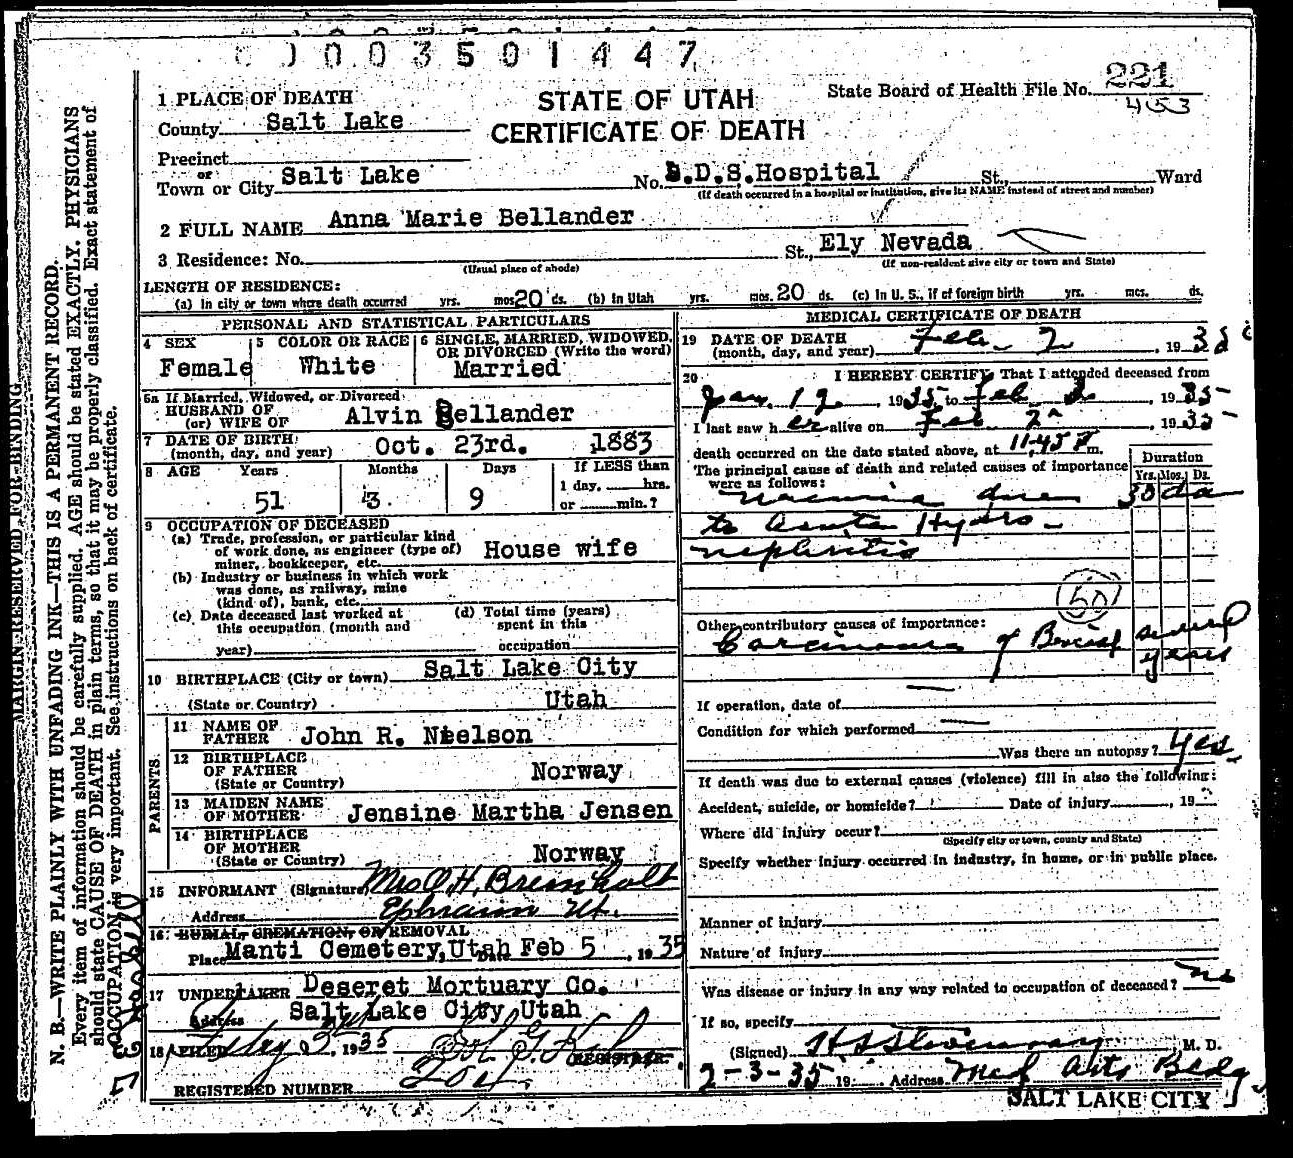 0003501447
1 PLACE OF DEATH
County Salt Lake
Precinct
or
Town or City Salt Lake
STATE OF UTAH
CERTIFICATE OF DEATH
State Board of Health File No. 221
453
No. L.D.S. Hospital St., Ward
(If death occurred in a hospital or institution, give its NAME instead of street and number)
2 FULL NAME Anna Marie Bellander
3 Residence: No. St., Ely Nevada
(Usual place of abode) (If non-resident give city or town and State)
LENGTH OF RESIDENCE:
(a) In city or town where death occurred yrs. mos. 20 ds. (b) In Utah yrs. mos. 20 ds. (c) In U. S., if of foreign birth yrs. mcs. ds.
PERSONAL AND STATISTICAL PARTICULARS
4 SEX
Female
5 COLOR OR RACE
White
6 SINGLE, MARRIED, WIDOWED,
OR DIVORCED (Write the word)
Married
5a If Married, Widowed, or Divorced
HUSBAND OF
(or) WIFE OF Alvin Bellander
7 DATE OF BIRTH
(month, day, and year) Oct. 23rd. 1883
8 AGE Years Months Days If LESS than
1 day, hrs.
51 3 9 or min.?
9 OCCUPATION OF DECEASED
(a) Trade, profession, or particular kind
of work done, as engineer (type of)
miner, bookkeeper, etc. House wife
(b) Industry or business in which work
was done, as railway, mine
(kind of), bank, etc.
(c) Date deceased last worked at
this occupation (month and
year)
(d) Total time (years)
spent in this
occupation
10 BIRTHPLACE (City or town) Salt Lake City
(State or Country) Utah
PARENTS.
11 NAME OF
FATHER John R. Nielson
12 BIRTHPLACE
OF FATHER
(State or Country) Norway
13 MAIDEN NAME
OF MOTHER Jensine Martha Jensen
14 BIRTHPLACE
OF MOTHER
(State or Country) Norway
15 INFORMANT (Signature) Mrs O. H. Breinholt
Address Ephraim Ut.
16 BURIAL, CREMATION, OR REMOVAL
Place Manti Cemetery, Utah Date Feb 5, 1935
17 UNDERTAKER Deseret Mortuary Co.
Address Salt Lake City Utah
18 FILED 1935
REGISTRAR
REGISTERED NUMBER
MEDICAL CERTIFICATE OF DEATH
19 DATE OF DEATH
(month, day, and year) Feb. 2, 1935
20 I HEREBY CERTIFY That I attended deceased from
Jan. 12, 1935 to Feb 2, 1935
I last saw her alive on Feb 2, 1935
death occurred on the date stated above, at 11:45 m.
The principal cause of death and related causes of importance
were as follows:
Duration
Yrs. Mos. Ds.
due 30 da
to Acute Hydro-
nephritis
50
Other contributory causes of importance:
Carcinoma of Breast several
years
If operation, date of
Condition for which performed
Was there an autopsy? Yes
If death was due to external causes (violence) fill in also the following:
Accident, suicide, or homicide? Date of injury, 19
Where did injury occur?
(Specify city or town, county and State)
Specify whether injury occurred in industry, in home, or in public place.
Manner of injury
Nature of injury
Was disease or injury in any way related to occupation of deceased? no
If so, specify
(Signed) M. D.
2-3-35 19 Address Med Arts Bldg
SALT LAKE CITY
MARGIN RESERVED FOR BINDING
N. B.—WRITE PLAINLY WITH UNFADING INK—THIS IS A PERMANENT RECORD.
Every item of information should be carefully supplied. AGE should be stated EXACTLY. PHYSICIANS
should state CAUSE OF DEATH in plain terms, so that it may be properly classified. Exact statement of
OCCUPATION is very important. See instructions on back of certificate.